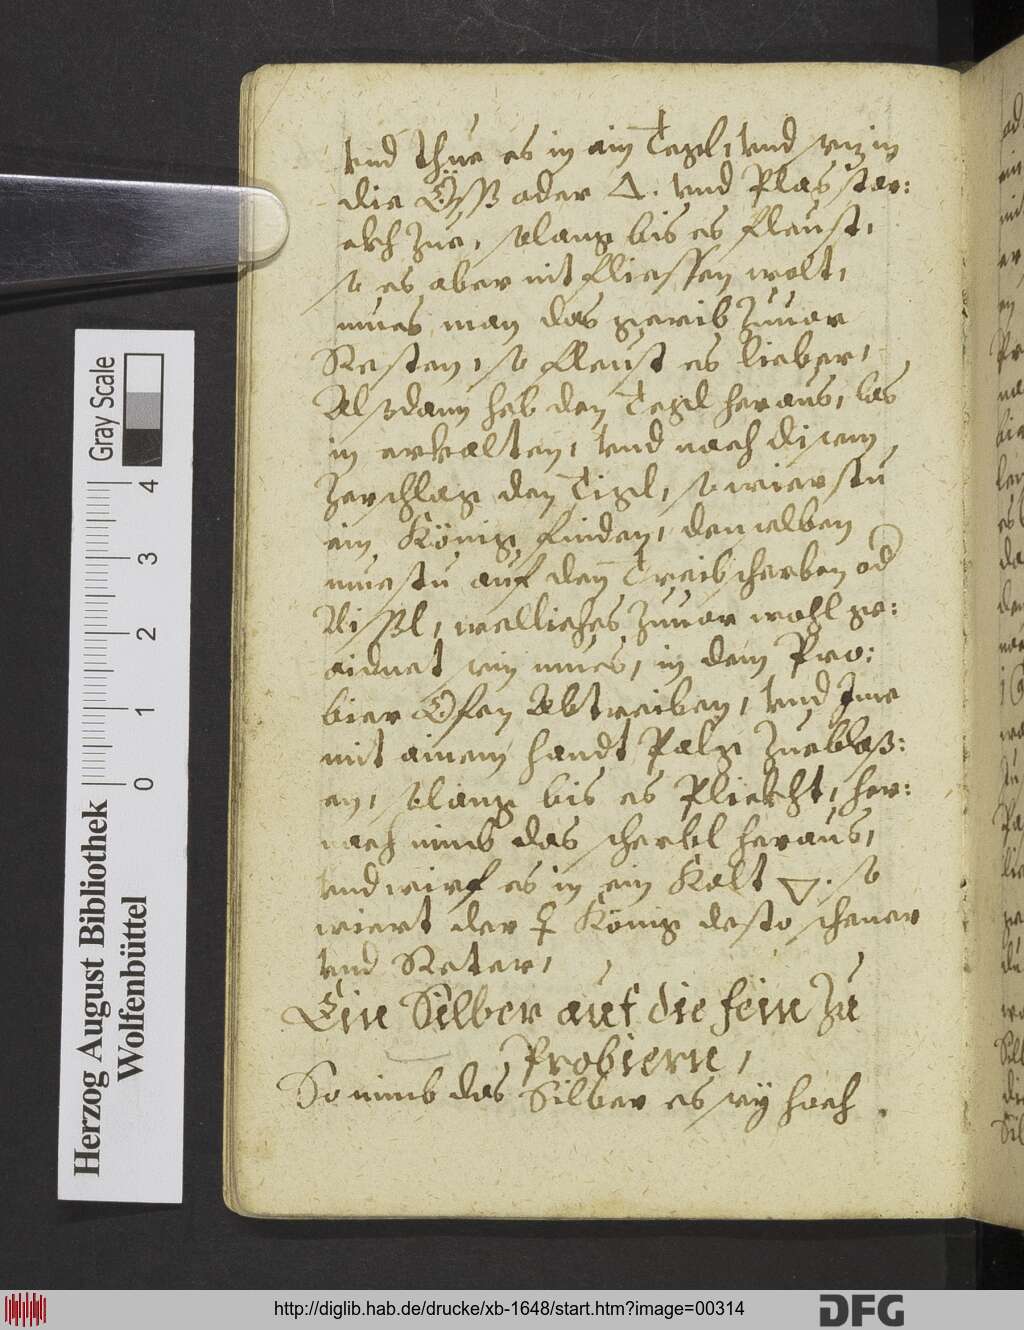 vnd thue es in ain Tegl, vnd secz in
die Öss oder △. vnd Plas star:
ckh zue, solang bis es fleust,
so es aber nit fliessen wolt,
mues man das gerib zuuor
Resten, so fleust es lieber,
Alßdann heb den Tegl heraus, las
in erkalten, vnd nach disem
zerschlag den Tigl, so wierstu
ein König finden, denselben
muestu auf den Treibscherben od
Nißl, welliches zuuor wohl ge:
aidnet sein mues, in dem Pro:
bier Ofen Abtreiben, vnd Ime
mit ainem handt Palg zueblaß:
en, solang bis es Plickht, her:
nach nimb das scherbl heraus,
vnd wirf es in ein Kalt ▽. so
wiert der ♀ König desto schener
vnd Reter,
Ein Silber auf die fein zu
Probiern,
So nimb das Silber es sey hoch
Gray Scale
4 3 2 1 0
Herzog August Bibliothek
Wolfenbüttel
http://diglib.hab.de/drucke/xb-1648/start.htm?image=00314
DFG